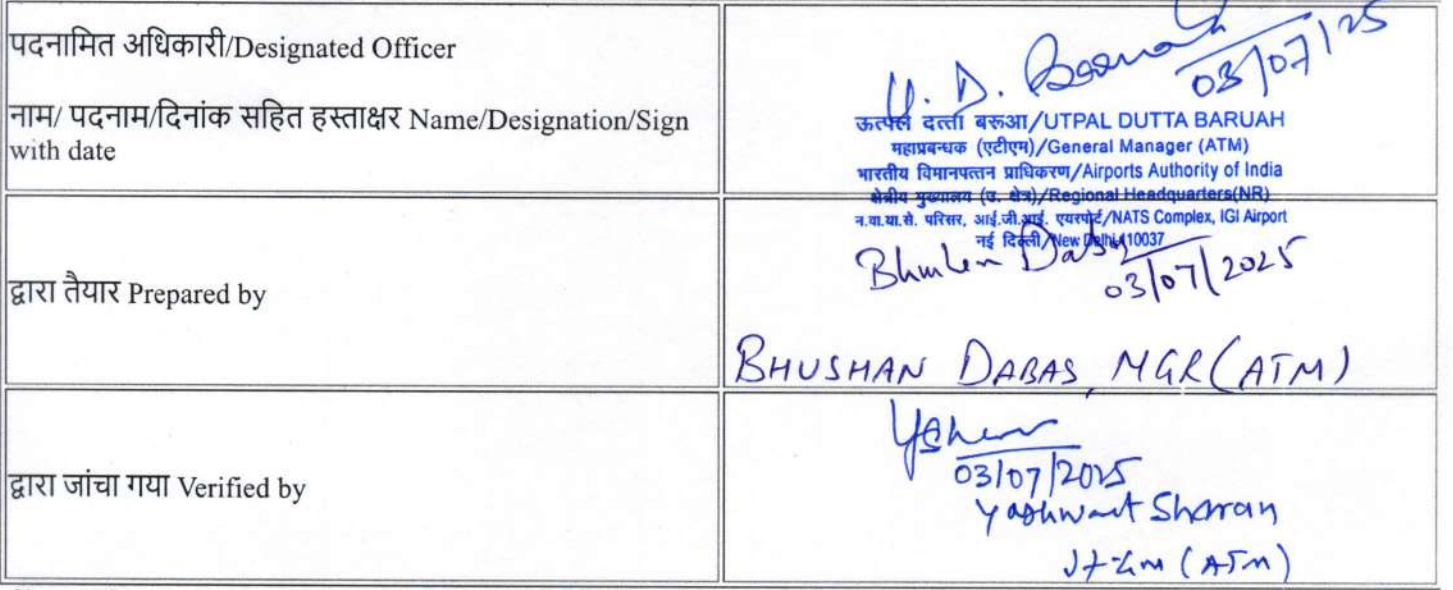 पदनामित अधिकारी/Designated Officer
नाम/ पदनाम/दिनांक सहित हस्ताक्षर Name/Designation/Sign
with date
U. D. Baruah
03/07/25
ऊत्पल दत्ता बरूआ/UTPAL DUTTA BARUAH
महाप्रबन्धक (एटीएम)/General Manager (ATM)
भारतीय विमानपत्तन प्राधिकरण/Airports Authority of India
क्षेत्रीय मुख्यालय (उ. क्षेत्र)/Regional Headquarters(NR)
न.वा.या.से. परिसर, आई.जी.आई. एयरपोर्ट/NATS Complex, IGI Airport
नई दिल्ली/New Delhi-110037
द्वारा तैयार Prepared by
Bhushan Dabas
03/07/2025
BHUSHAN DABAS, MGR (ATM)
द्वारा जांचा गया Verified by
03/07/2025
Yashwant Sharan
Jt-GM (ATM)